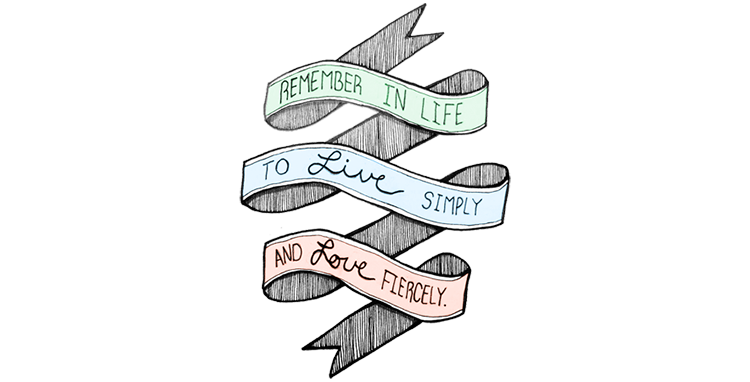 REMEMBER IN LIFE
TO Live SIMPLY
AND Love FIERCELY.